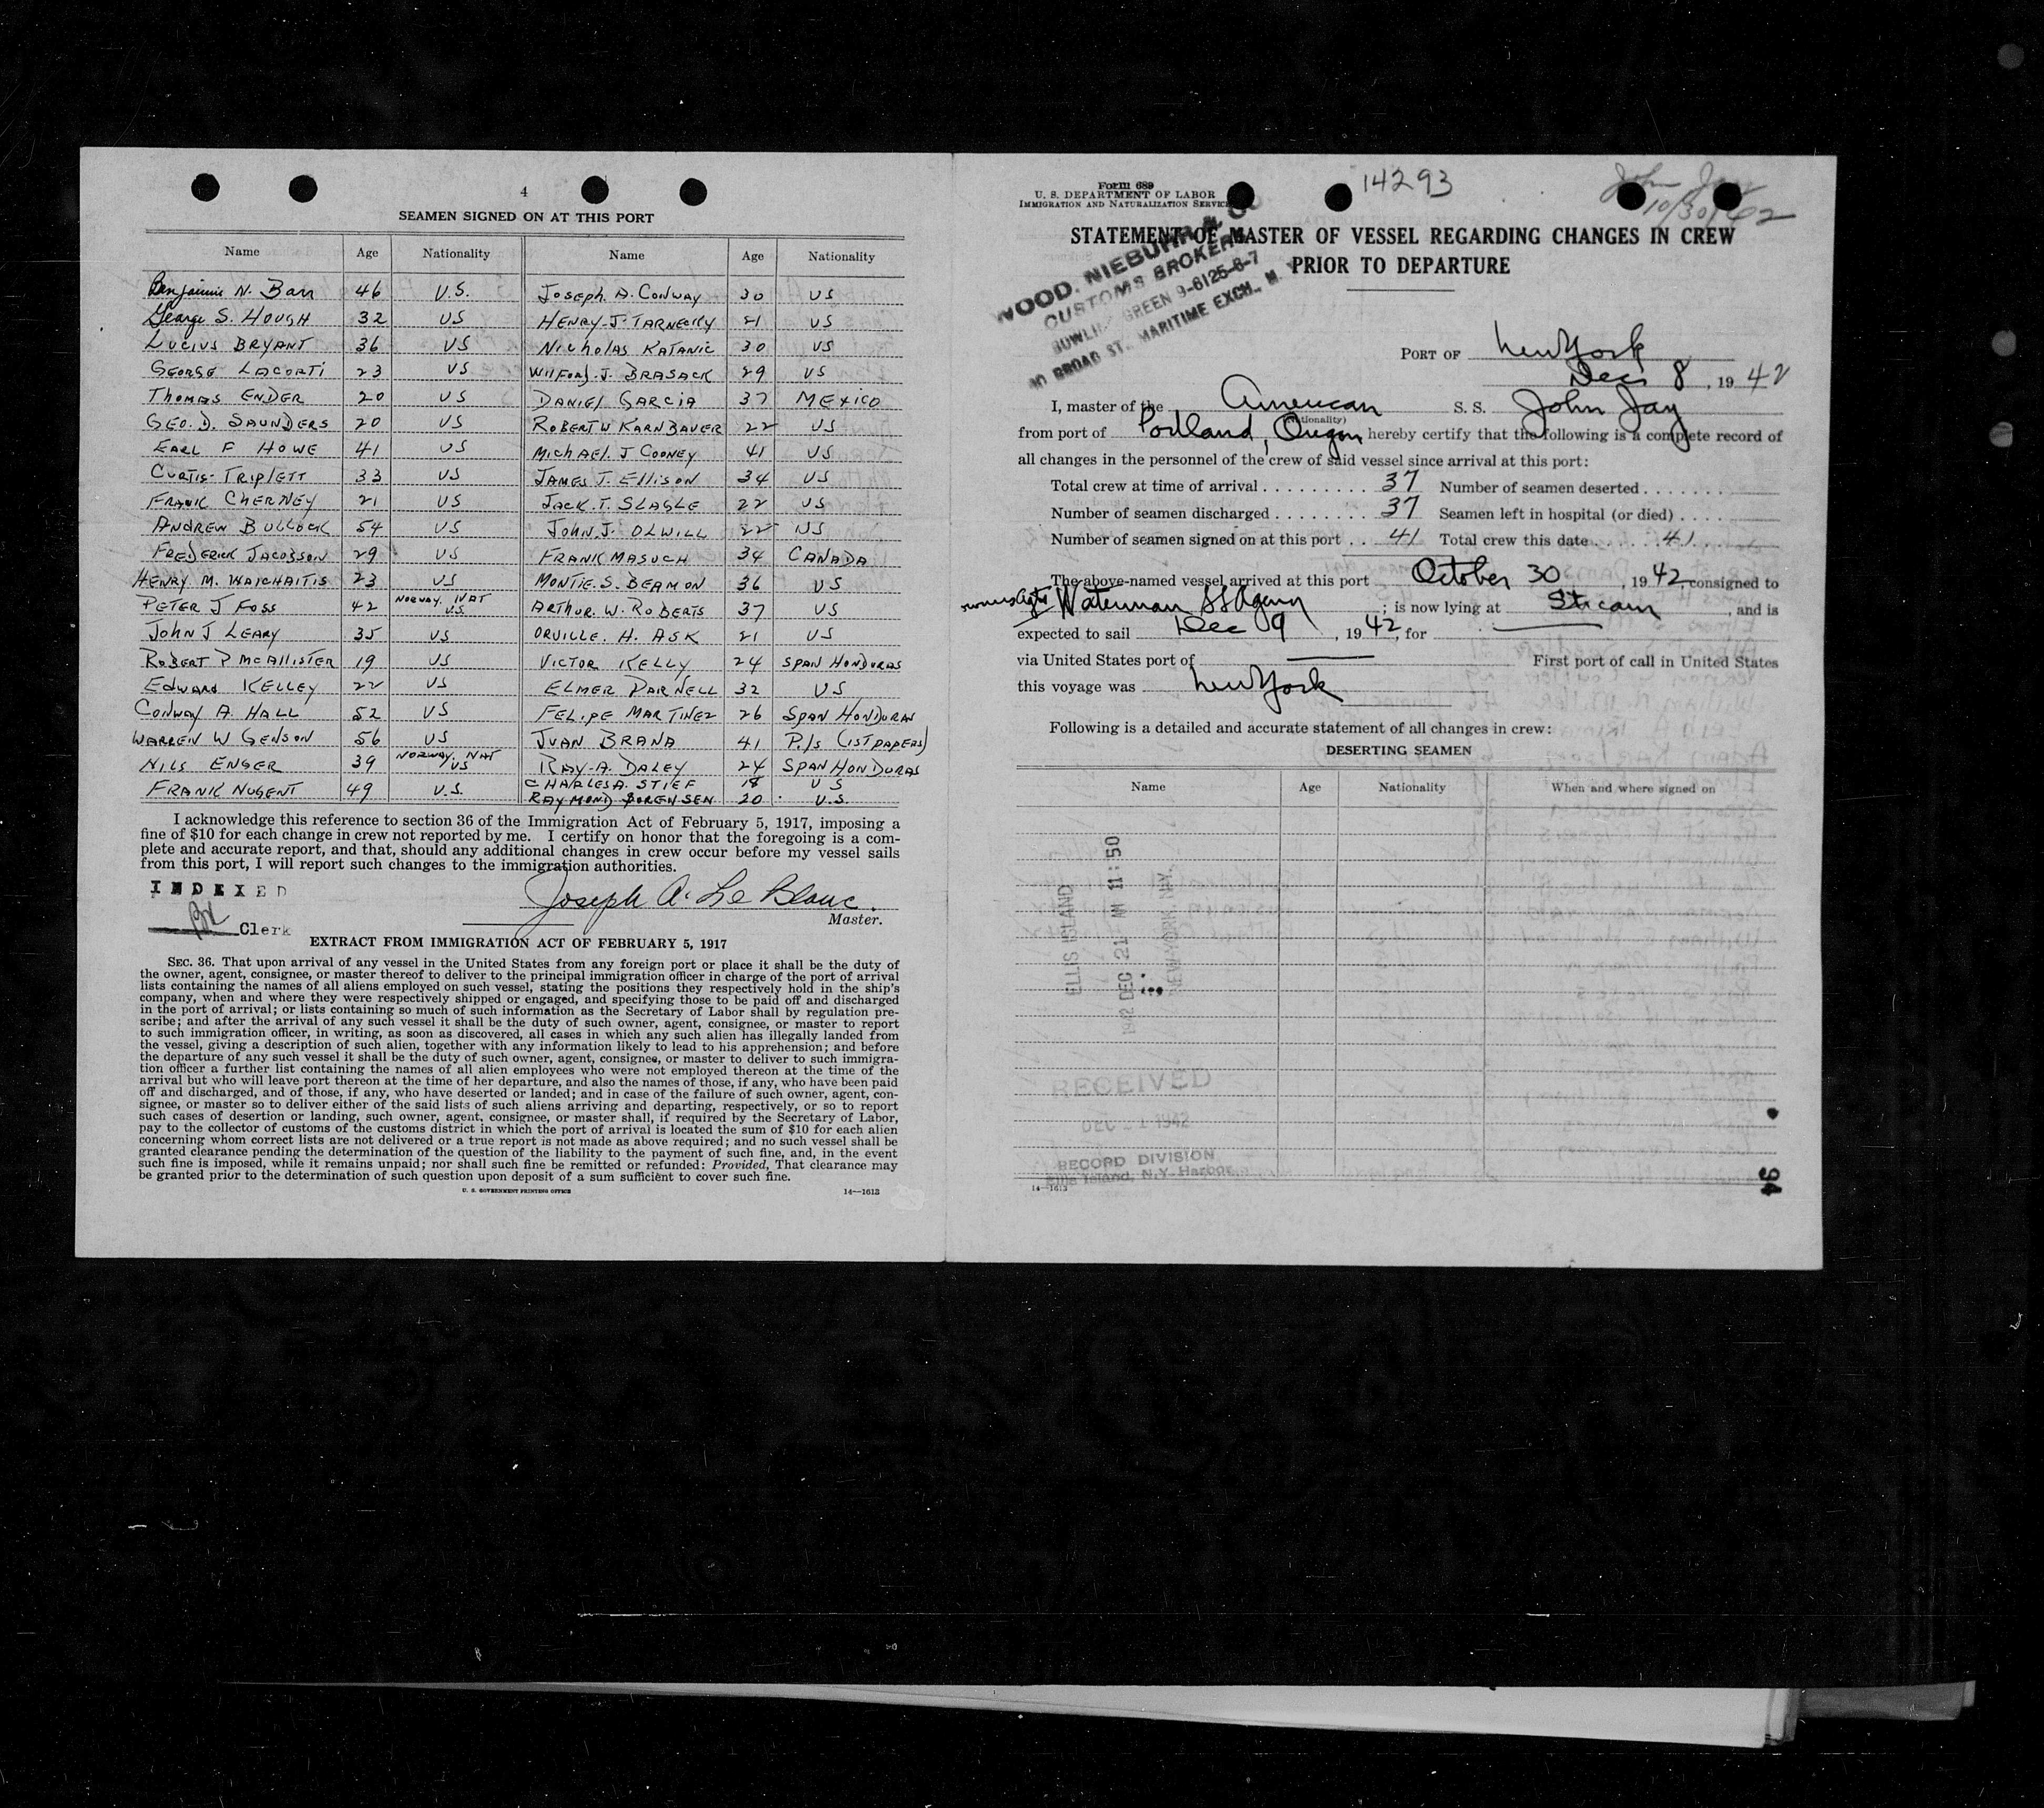 4
SEAMEN SIGNED ON AT THIS PORT
Name Age Nationality Name Age Nationality
Benjamin N. Barr 46 U.S. Joseph A. Conway 30 US
George S. HOUGH 32 US HENRY J. TARNECKY 21 US
LUCIUS BRYANT 36 US Nicholas KATANIC 30 US
GEORGE LACORTI 23 US WilFord. J. BRASACK 29 US
THOMAS ENDER 20 US DANIEL GARCIA 37 MEXICO
GEO. D. SAUNDERS 20 US ROBERT W KARNBAUER 22 US
EARL F HOWE 41 US MICHAEL J COONEY 41 US
CURTIS TRIPLETT 33 US JAMES T. Ellison 34 US
FRANK CHERNEY 21 US JACK. T. SLAGLE 22 US
ANDREW BULLOCK 54 US JOHN. J. OLWILL 22 US
FREDERICK JACOBSON 29 US FRANK MASUCH 34 CANADA
HENRY M. WAICHAITIS 23 US MONTIE. S. BEAMON 36 US
PETER J FOSS 42 NORWAY. NAT U.S. ARTHUR. W. ROBERTS 37 US
JOHN J LEARY 35 US ORVILLE. H. ASK 21 US
ROBERT P MCALLISTER 19 US VICTOR KELLY 24 SPAN HONDURAS
EDWARD KELLEY 22 US ELMER DARNELL 32 US
CONWAY A. HALL 52 US FELIPE MARTINEZ 26 SPAN HONDURAS
WARREN W GENSON 56 US JUAN BRANA 41 P.I.s (1ST PAPERS)
NILS ENGER 39 NORWAY. NAT US RAY. A. DALEY 24 SPAN HONDURAS
FRANK NUGENT 49 U.S. CHARLES A. STIEF 18 US
RAYMOND SORENSEN 20 U.S.
I acknowledge this reference to section 36 of the Immigration Act of February 5, 1917, imposing a
fine of $10 for each change in crew not reported by me. I certify on honor that the foregoing is a com-
plete and accurate report, and that, should any additional changes in crew occur before my vessel sails
from this port, I will report such changes to the immigration authorities.
INDEXED
Joseph A. Le Blanc.
Clerk
Master.
EXTRACT FROM IMMIGRATION ACT OF FEBRUARY 5, 1917
SEC. 36. That upon arrival of any vessel in the United States from any foreign port or place it shall be the duty of
the owner, agent, consignee, or master thereof to deliver to the principal immigration officer in charge of the port of arrival
lists containing the names of all aliens employed on such vessel, stating the positions they respectively hold in the ship's
company, when and where they were respectively shipped or engaged, and specifying those to be paid off and discharged
in the port of arrival; or lists containing so much of such information as the Secretary of Labor shall by regulation pre-
scribe; and after the arrival of any such vessel it shall be the duty of such owner, agent, consignee, or master to report
to such immigration officer, in writing, as soon as discovered, all cases in which any such alien has illegally landed from
the vessel, giving a description of such alien, together with any information likely to lead to his apprehension; and before
the departure of any such vessel it shall be the duty of such owner, agent, consignee, or master to deliver to such immigra-
tion officer a further list containing the names of all alien employees who were not employed thereon at the time of the
arrival but who will leave port thereon at the time of her departure, and also the names of those, if any, who have been paid
off and discharged, and of those, if any, who have deserted or landed; and in case of the failure of such owner, agent, con-
signee, or master so to deliver either of the said lists of such aliens arriving and departing, respectively, or so to report
such cases of desertion or landing, such owner, agent, consignee, or master shall, if required by the Secretary of Labor,
pay to the collector of customs of the customs district in which the port of arrival is located the sum of $10 for each alien
concerning whom correct lists are not delivered or a true report is not made as above required; and no such vessel shall be
granted clearance pending the determination of the question of the liability to the payment of such fine, and, in the event
such fine is imposed, while it remains unpaid; nor shall such fine be remitted or refunded: Provided, That clearance may
be granted prior to the determination of such question upon deposit of a sum sufficient to cover such fine.
U. S. GOVERNMENT PRINTING OFFICE 14—1613
Form 689
U. S. DEPARTMENT OF LABOR
IMMIGRATION AND NATURALIZATION SERVICE
14293
John Jay
10/30/42
STATEMENT OF MASTER OF VESSEL REGARDING CHANGES IN CREW
PRIOR TO DEPARTURE
WOOD, NIEBUHR & CO
CUSTOMS BROKERS
BOWLING GREEN 9-6125-6-7
BROAD ST., MARITIME EXCH.
PORT OF New York
Dec 8, 1942
I, master of the American S. S. John Jay
(Nationality)
from port of Portland, Oregon hereby certify that the following is a complete record of
all changes in the personnel of the crew of said vessel since arrival at this port:
Total crew at time of arrival 37 Number of seamen deserted
Number of seamen discharged 37 Seamen left in hospital (or died)
Number of seamen signed on at this port 41 Total crew this date 41
The above-named vessel arrived at this port October 30, 1942 consigned to
owners Agts Waterman SS Agency; is now lying at Stream, and is
expected to sail Dec 9, 1942, for
via United States port of First port of call in United States
this voyage was New York
Following is a detailed and accurate statement of all changes in crew:
DESERTING SEAMEN
Name Age Nationality When and where signed on
ELLIS ISLAND
1942 DEC 21 AM 11:50
NEW YORK, N.Y.
RECEIVED
DEC 1942
RECORD DIVISION
Ellis Island, N.Y. Harbor
14—1613
94